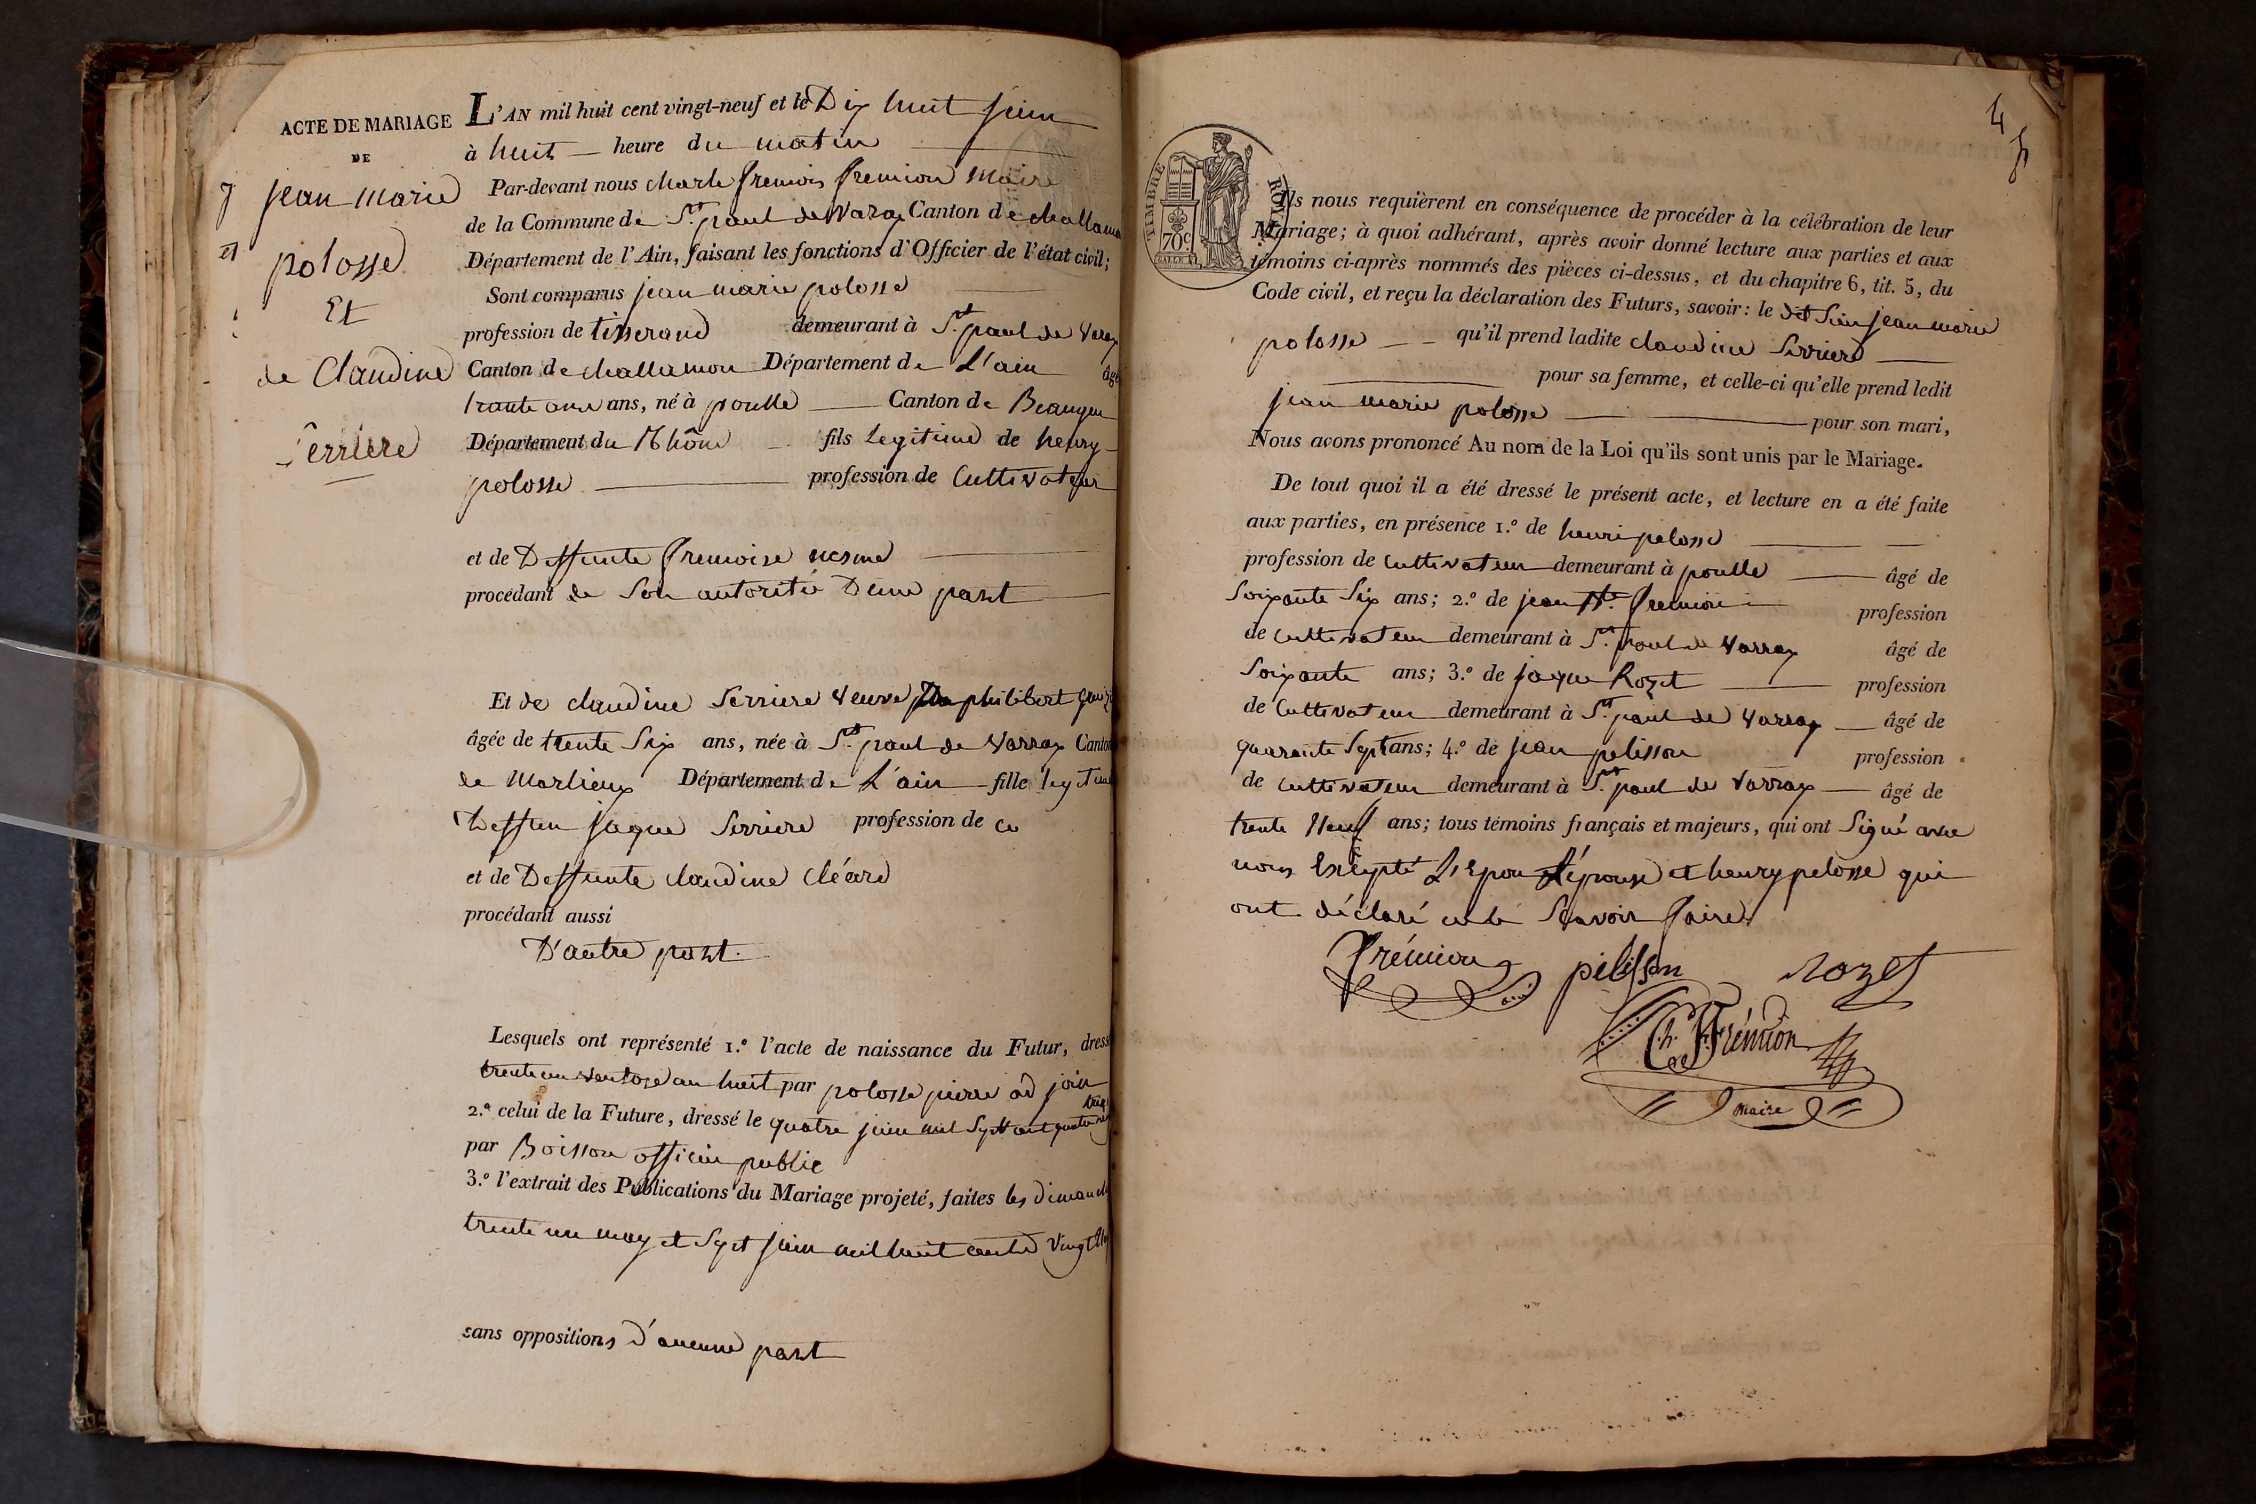 ACTE DE MARIAGE
DE
jean marie
polosse
Et
de Claudine
Serriere
L'AN mil huit cent vingt-neuf et le Dix huit juin
à huit heure du matin
Par-devant nous charle fremion maire
de la Commune de St. paul de Varax Canton de challamon
Département de l'Ain, faisant les fonctions d'Officier de l'état civil;
Sont comparus jean marie polosse
profession de tisserand demeurant à St. paul de Varax
Canton de challamon Département de L'ain âgé
trante ans, né à poulle Canton de Beaugeu
Département du Rhône fils legitime de henry
polosse profession de Cultivateur
et de Deffunte francoise nesme
procédant de Son autorité D'une part
Et de claudine Serriere veuve philibert
âgée de trente Six ans, née à St. paul de Varrax Canton
de Marlieux Département de L'ain fille legitime
Deffun jaque Serriere profession de
et de Deffunte claudine Cléard
procédant aussi
D'autre part.
Lesquels ont représenté 1.° l'acte de naissance du Futur, dressé
trente un ventose an huit par polosse pierre adjoin
2.° celui de la Future, dressé le quatre juin mil Sept cent quatre vingt
par Boisson officier public
3.° l'extrait des Publications du Mariage projeté, faites les dimanche
trente un may et Sept juin mil huit cents Vingt
sans oppositions d'aucune part
4
TIMBRE ROYAL
70c
Ils nous requièrent en conséquence de procéder à la célébration de leur
Mariage; à quoi adhérant, après avoir donné lecture aux parties et aux
témoins ci-après nommés des pièces ci-dessus, et du chapitre 6, tit. 5, du
Code civil, et reçu la déclaration des Futurs, savoir: le dit Sieur jean marie
polosse qu'il prend ladite claudine Serriere
pour sa femme, et celle-ci qu'elle prend ledit
jean marie polosse pour son mari,
Nous avons prononcé Au nom de la Loi qu'ils sont unis par le Mariage.
De tout quoi il a été dressé le présent acte, et lecture en a été faite
aux parties, en présence 1.° de henri pelosse
profession de cultivateur demeurant à poulle âgé de
Soixante Six ans; 2.° de jean fremion profession
de cultivateur demeurant à St. paul de Varrax âgé de
Soixante ans; 3.° de jaque Rozet profession
de Cultivateur demeurant à St. paul de Varrax âgé de
quarante Sept ans; 4.° de jean pelisson profession
de cultivateur demeurant à St. paul de Varrax âgé de
trente Neuf ans; tous témoins français et majeurs, qui ont Signé avec
nous Excepté L'epoux L'épouse et henry pelosse qui
ont déclaré ne le Scavoir faire.
frémion pelisson rozet
Ch. F. Frémion
maire